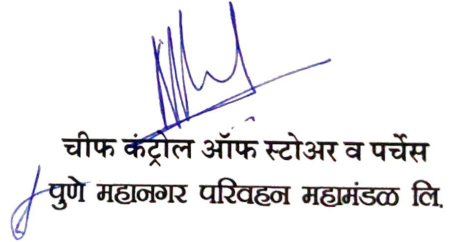 चीफ कंट्रोल ऑफ स्टोअर व पर्चेस
पुणे महानगर परिवहन महामंडळ लि.